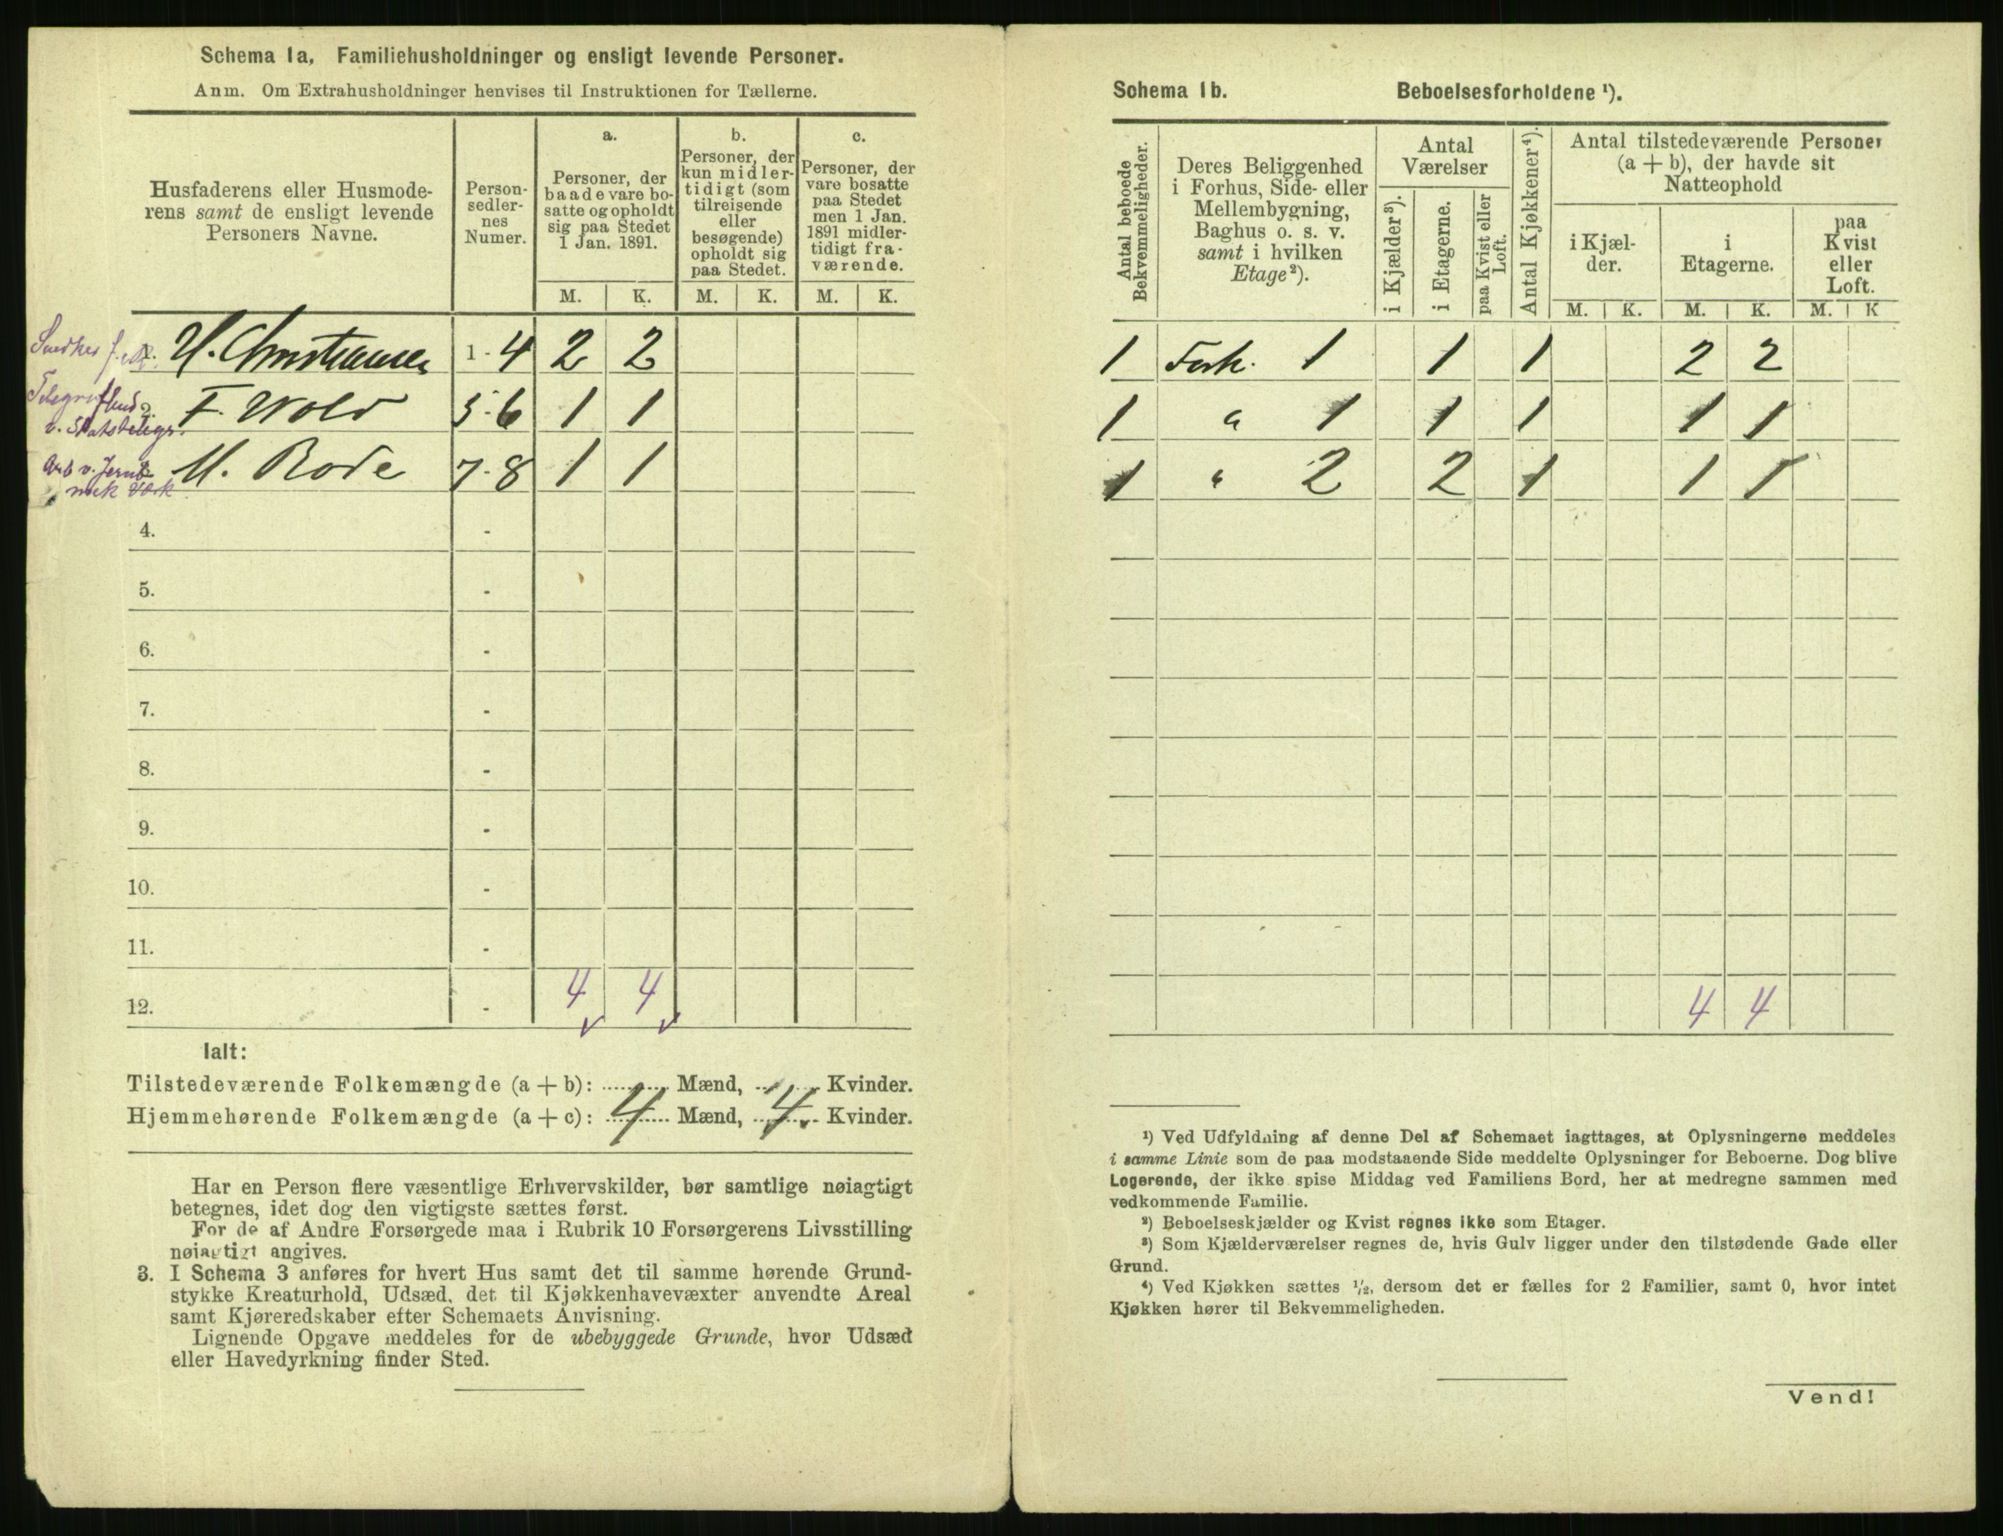 Schema 1a, Familiehusholdninger og ensligt levende Personer.
Anm. Om Extrahusholdninger henvises til Instruktionen for Tællerne.
Husfaderens eller Husmoderens samt de ensligt levende Personers Navne.
Personsedlernes Numer.
a. Personer, der baade vare bosatte og opholdt sig paa Stedet 1 Jan. 1891.
b. Personer, der kun midlertidigt (som tilreisende eller besøgende) opholdt sig paa Stedet.
c. Personer, der vare bosatte paa Stedet men 1 Jan. 1891 midlertidigt fraværende.
M. K. M. K. M. K.
Snedker f. H. Christiansen 1-4 2 2
2. F. Wold 5-6 1 1
v. Statstelegr.
Arb v. Jernb M. Rode 7-8 1 1
mek Værk
4. -
5. -
6. -
7. -
8. -
9. -
10. -
11. -
12. - 4 4
Ialt:
Tilstedeværende Folkemængde (a + b): Mænd, Kvinder.
Hjemmehørende Folkemængde (a + c): 4 Mænd, 4 Kvinder.
Har en Person flere væsentlige Erhvervskilder, bør samtlige nøiagtigt
betegnes, idet dog den vigtigste sættes først.
For de af Andre Forsørgede maa i Rubrik 10 Forsørgerens Livsstilling
nøiagtigt angives.
3. I Schema 3 anføres for hvert Hus samt det til samme hørende Grund-
stykke Kreaturhold, Udsæd, det til Kjøkkenhavevæxter anvendte Areal
samt Kjøreredskaber efter Schemaets Anvisning.
Lignende Opgave meddeles for de ubebyggede Grunde, hvor Udsæd
eller Havedyrkning finder Sted.
Schema 1b. Beboelsesforholdene ¹).
Antal beboede Bekvemmeligheder.
Deres Beliggenhed i Forhus, Side- eller Mellembygning, Baghus o. s. v. samt i hvilken Etage²).
Antal Værelser
i Kjælder³).
i Etagerne.
paa Kvist eller Loft.
Antal Kjøkkener⁴).
Antal tilstedeværende Personer (a + b), der havde sit Natteophold
i Kjælder.
i Etagerne.
paa Kvist eller Loft.
M. K. M. K. M. K
1 Forh. 1 1 1 2 2
1 " 1 1 1 1 1
1 " 2 2 1 1 1
4 4
¹) Ved Udfyldning af denne Del af Schemaet iagttages, at Oplysningerne meddeles
i samme Linie som de paa modstaaende Side meddelte Oplysninger for Beboerne. Dog blive
Logerende, der ikke spise Middag ved Familiens Bord, her at medregne sammen med
vedkommende Familie.
²) Beboelseskjælder og Kvist regnes ikke som Etager.
³) Som Kjælderværelser regnes de, hvis Gulv ligger under den tilstødende Gade eller
Grund.
⁴) Ved Kjøkken sættes ½, dersom det er fælles for 2 Familier, samt 0, hvor intet
Kjøkken hører til Bekvemmeligheden.
Vend!